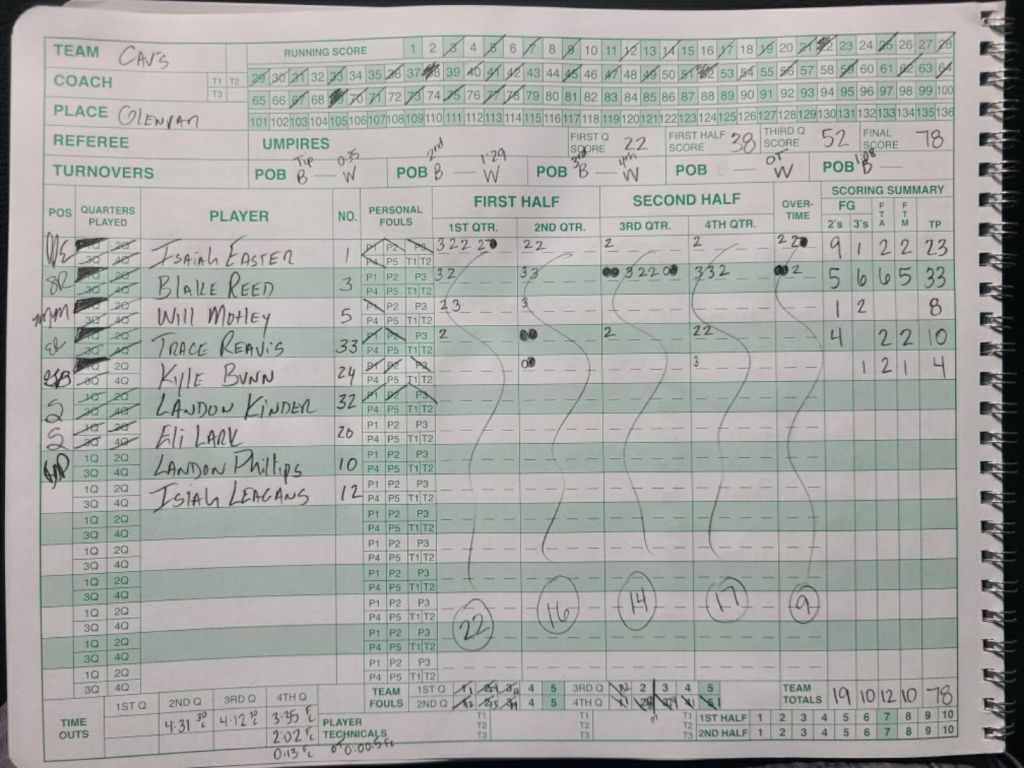 TEAM CAVS RUNNING SCORE 1 2 3 4 5 6 7 8 9 10 11 12 13 14 15 16 17 18 19 20 21 22 23 24 25 26 27 28
COACH T1 T2 T3 29 30 31 32 33 34 35 36 37 38 39 40 41 42 43 44 45 46 47 48 49 50 51 52 53 54 55 56 57 58 59 60 61 62 63 64
65 66 67 68 69 70 71 72 73 74 75 76 77 78 79 80 81 82 83 84 85 86 87 88 89 90 91 92 93 94 95 96 97 98 99 100
PLACE GLENVAR 101 102 103 104 105 106 107 108 109 110 111 112 113 114 115 116 117 118 119 120 121 122 123 124 125 126 127 128 129 130 131 132 133 134 135 136
REFEREE UMPIRES FIRST Q SCORE 22 FIRST HALF SCORE 38 THIRD Q SCORE 52 FINAL SCORE 78
Tip 0:35 2nd 1:29 3rd 4th OT 1:08
TURNOVERS POB B — W POB B — W POB B — W POB W POB B —
POS QUARTERS PLAYED PLAYER NO. PERSONAL FOULS FIRST HALF SECOND HALF OVER-TIME SCORING SUMMARY
1ST QTR. 2ND QTR. 3RD QTR. 4TH QTR. FG 2's 3's FTA FTM TP
1Q 2Q 3Q 4Q ISAIAH EASTER 1 P1 P2 P3 P4 P5 T1 T2 3 2 2 2 0 2 2 2 2 2 2 0 9 1 2 2 23
1Q 2Q 3Q 4Q BLAKE REED 3 P1 P2 P3 P4 P5 T1 T2 3 2 3 3 3 2 2 0 3 3 2 2 5 6 6 5 33
1Q 2Q 3Q 4Q WILL MOTLEY 5 P1 P2 P3 P4 P5 T1 T2 2 3 3 1 2 8
1Q 2Q 3Q 4Q TRACE REAVIS 33 P1 P2 P3 P4 P5 T1 T2 2 2 2 2 4 2 2 10
1Q 2Q 3Q 4Q KYLE BUNN 24 P1 P2 P3 P4 P5 T1 T2 0 3 1 2 1 4
S 1Q 2Q 3Q 4Q LANDON KINDER 32 P1 P2 P3 P4 P5 T1 T2
S 1Q 2Q 3Q 4Q Eli LARK 20 P1 P2 P3 P4 P5 T1 T2
1Q 2Q 3Q 4Q LANDON Phillips 10 P1 P2 P3 P4 P5 T1 T2
1Q 2Q 3Q 4Q ISIAH LEAGANS 12 P1 P2 P3 P4 P5 T1 T2
1Q 2Q 3Q 4Q P1 P2 P3 P4 P5 T1 T2
1Q 2Q 3Q 4Q P1 P2 P3 P4 P5 T1 T2
1Q 2Q 3Q 4Q P1 P2 P3 P4 P5 T1 T2
1Q 2Q 3Q 4Q P1 P2 P3 P4 P5 T1 T2 22 16 14 17 9
1Q 2Q 3Q 4Q P1 P2 P3 P4 P5 T1 T2
1Q 2Q 3Q 4Q P1 P2 P3 P4 P5 T1 T2
TIME OUTS 1ST Q 2ND Q 3RD Q 4TH Q TEAM FOULS 1ST Q 4 5 3RD Q 2 3 4 5 TEAM TOTALS 19 10 12 10 78
4:31 4:12 3:35 2ND Q 4 5 4TH Q
2:02 PLAYER TECHNICALS T1 T2 T3 T1 T2 T3 1ST HALF 1 2 3 4 5 6 7 8 9 10
0:13 OT 0:00.5 2ND HALF 1 2 3 4 5 6 7 8 9 10